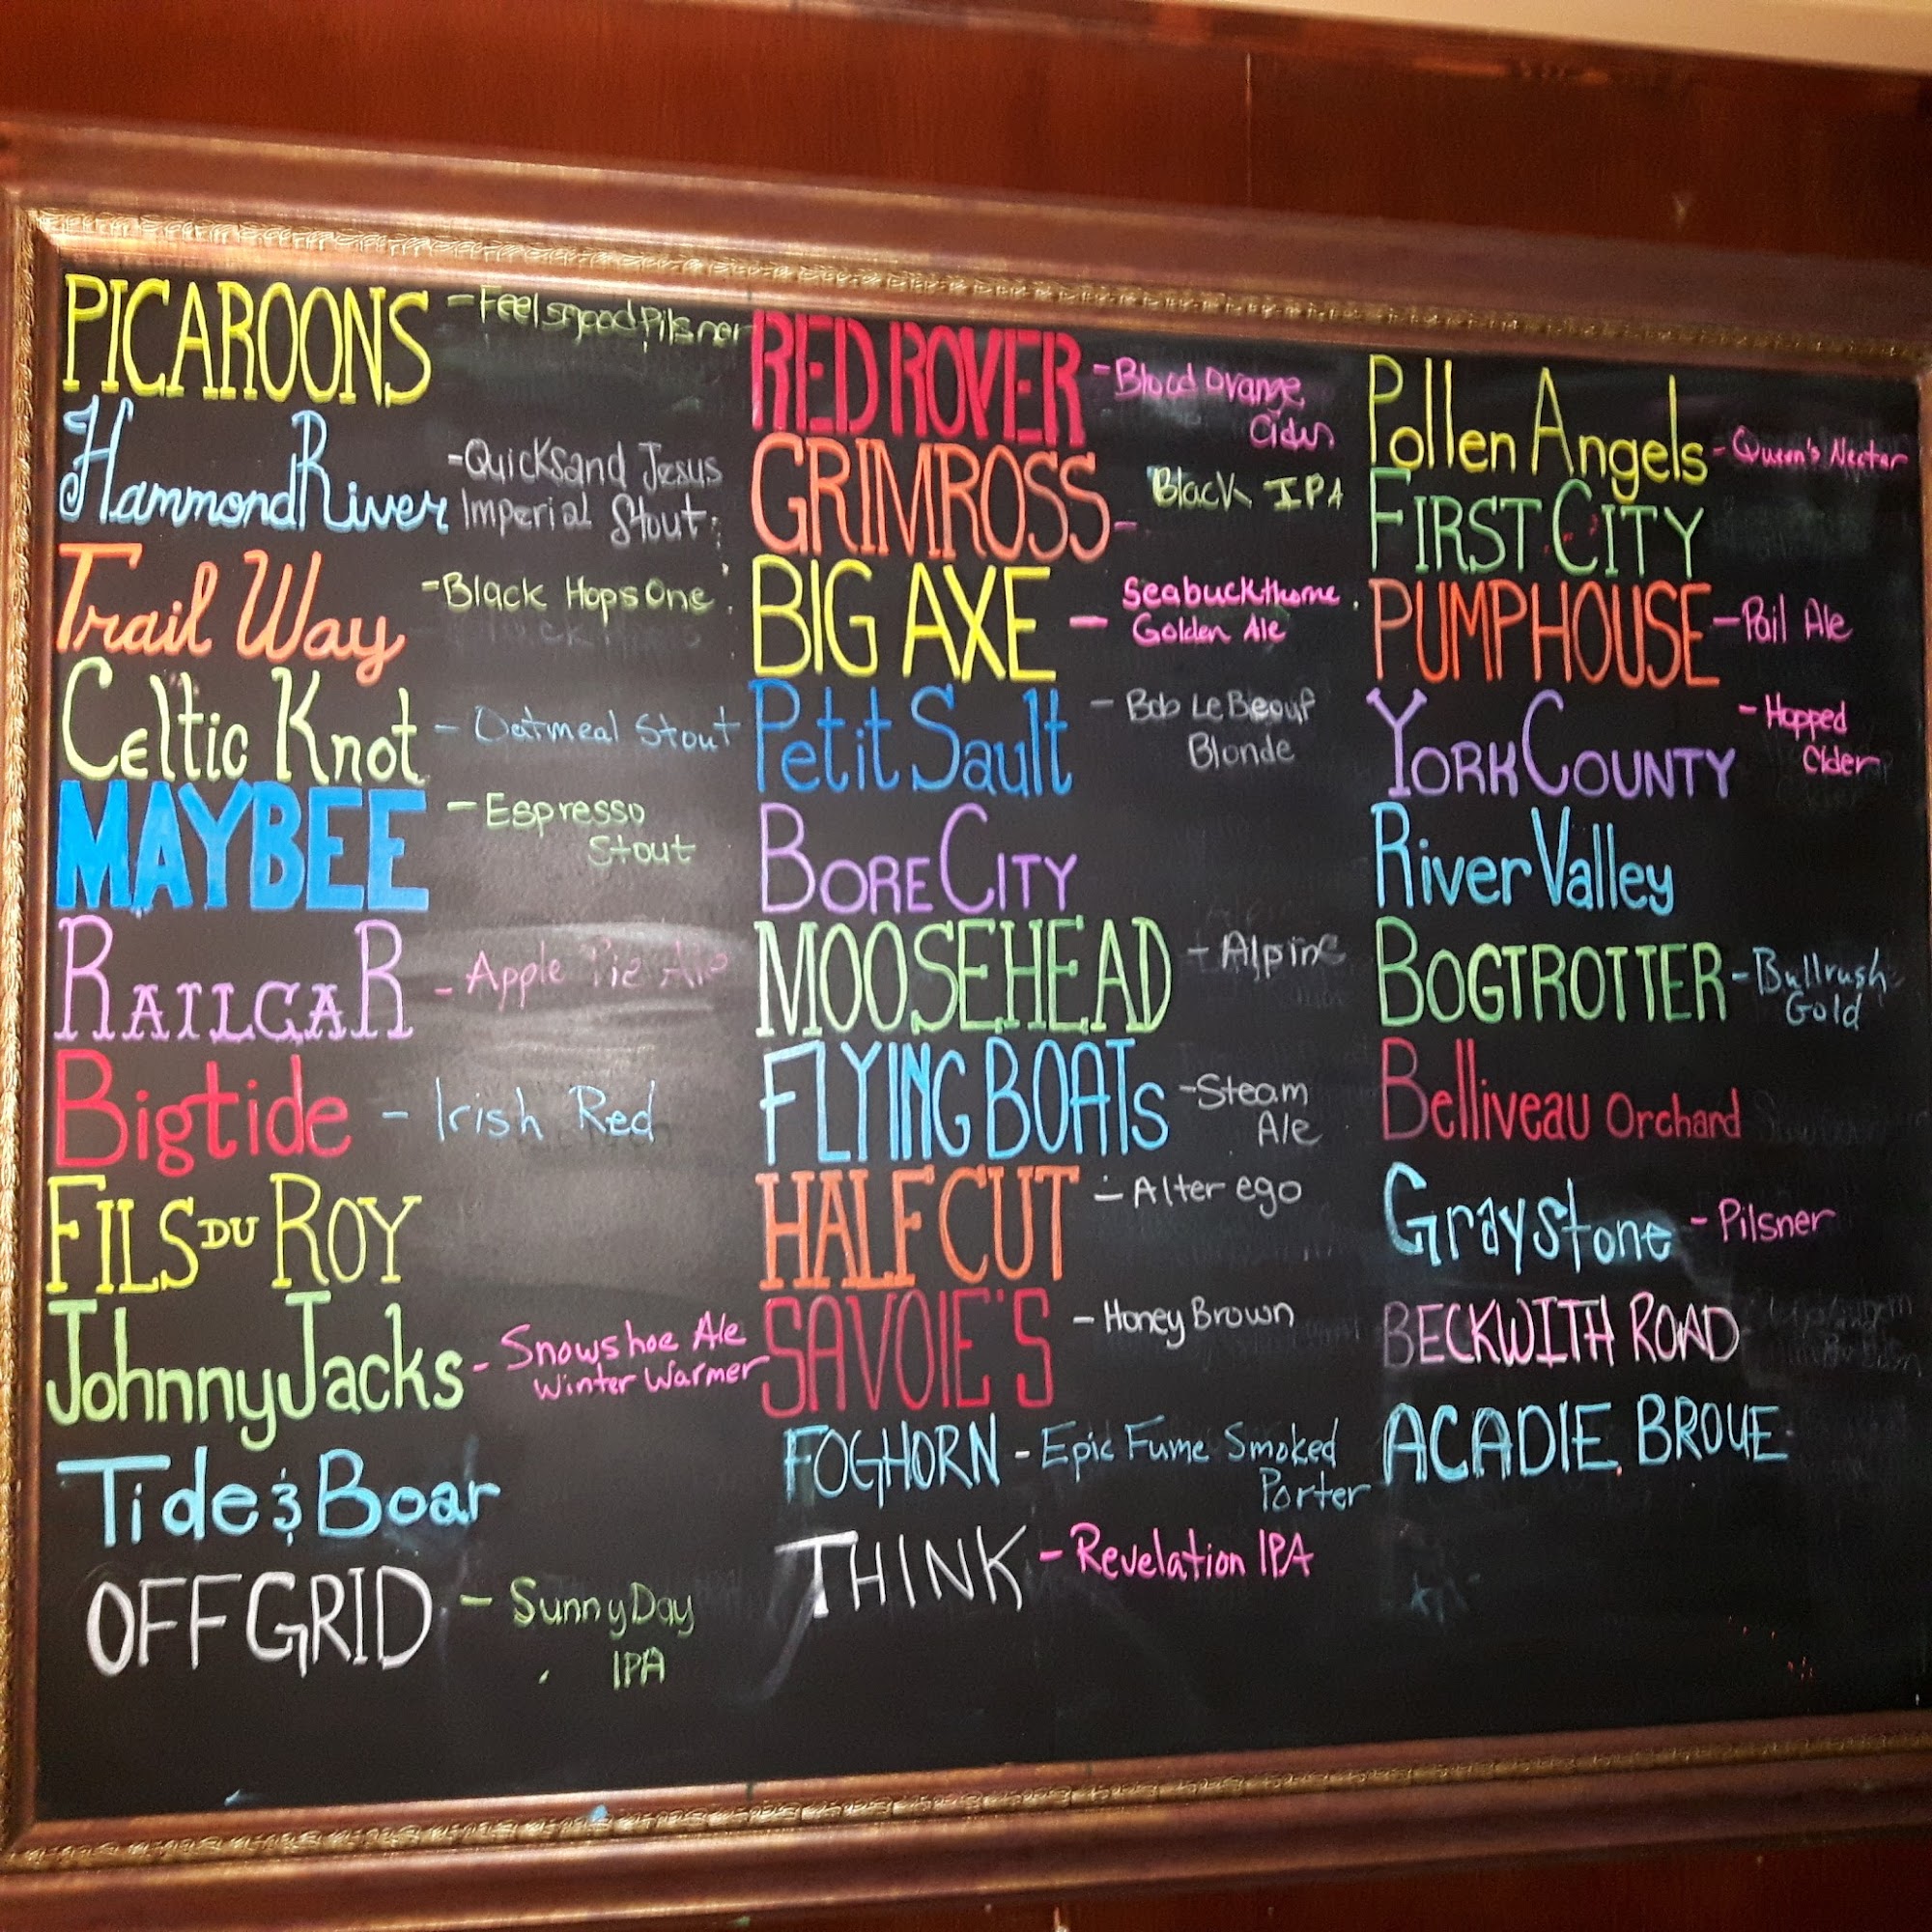 PICAROONS - Feelsgood Pilsner
HammondRiver - Quicksand Jesus
Imperial Stout
Trail Way - Black Hops One
Celtic Knot - Oatmeal Stout
MAYBEE - Espresso
Stout
RAILCAR - Apple Pie Ale
Bigtide - Irish Red
FILS DU ROY
JohnnyJacks - Snowshoe Ale
Winter Warmer
Tide & Boar
OFF GRID - Sunny Day
IPA
RED ROVER - Blood Orange
Cider
GRIMROSS - Black IPA
BIG AXE - Seabuckthorne
Golden Ale
Petit Sault - Bob Le Beouf
Blonde
BORE CITY
MOOSEHEAD - Alpine
FLYING BOATS - Steam
Ale
HALF CUT - Alter ego
SAVOIE'S - Honey Brown
FOGHORN - Epic Fume Smoked
Porter
THINK - Revelation IPA
Pollen Angels - Queen's Nectar
FIRST CITY
PUMPHOUSE - Pail Ale
YORK COUNTY - Hopped
Cider
River Valley
BOGTROTTER - Bullrush
Gold
Belliveau Orchard
Graystone - Pilsner
BECKWITH ROAD
ACADIE BROUE